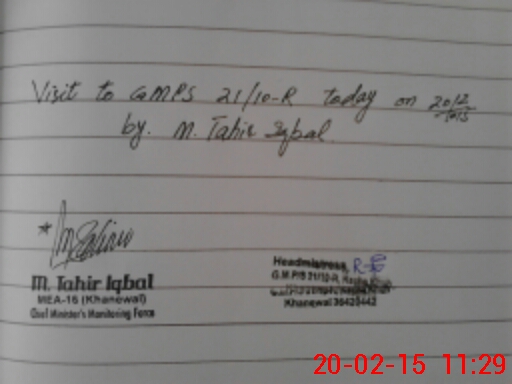 Visit to GMPS 21/10-R today on 20/2
by. M. Tahir Iqbal.
M. Tahir Iqbal
MEA-16 (Khanewal)
Chief Minister's Monitoring Force
Headmistress,
G.M.P/S 21/10-R,
Khanewal 36420442
20-02-15 11:29